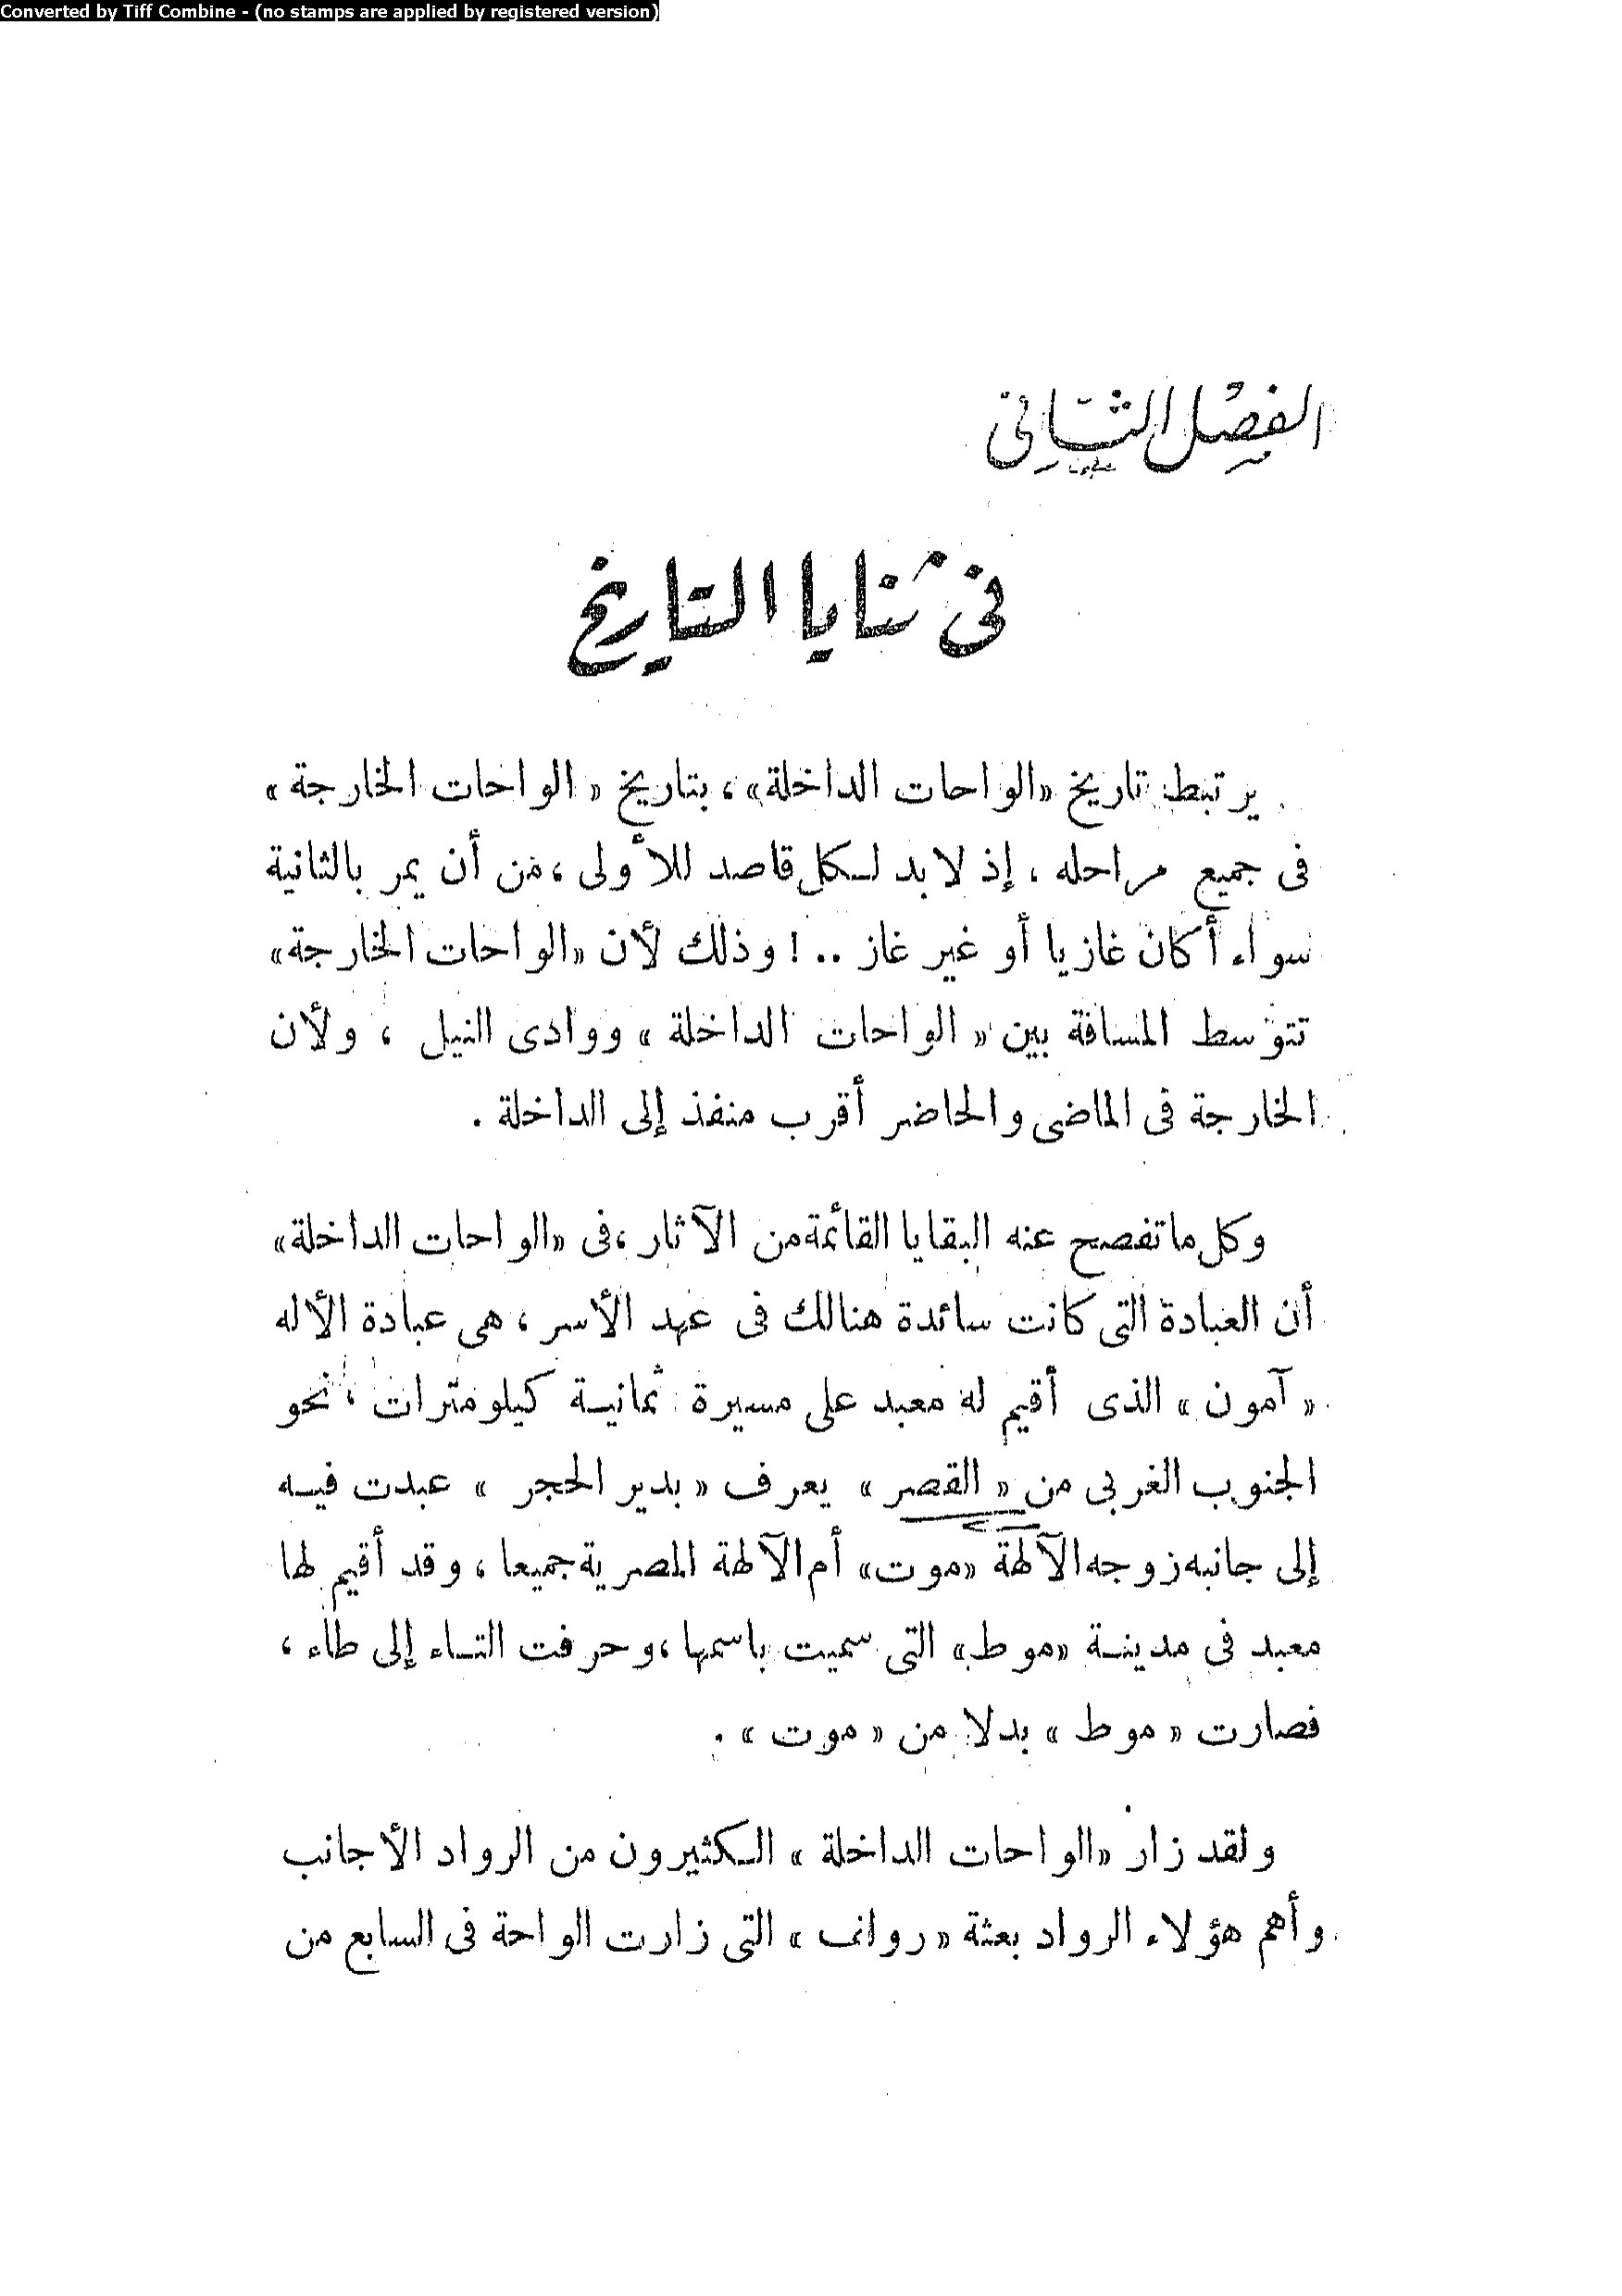 Converted by Tiff Combine - (no stamps are applied by registered version)
الفصل الثاني
فى ثنايا التاريخ
يرتبط تاريخ «الواحات الداخلة»، بتاريخ «الواحات الخارجة»
فى جميع مراحله ، إذ لا بد لكل قاصد للأولى ، من أن يمر بالثانية
سواء أكان غازيا أو غير غاز .. ! وذلك لأن «الواحات الخارجة»
تتوسط المسافة بين « الواحات الداخلة » ووادى النيل ، ولأن
الخارجة فى الماضى والحاضر أقرب منفذ إلى الداخلة .
وكل ما تفصح عنه البقايا القائمة من الآثار ، فى «الواحات الداخلة»
أن العبادة التى كانت سائدة هنالك فى عهد الأسر ، هى عبادة الأله
« آمون » الذى أقيم له معبد على مسيرة ثمانية كيلو مترات ، نحو
الجنوب الغربى من « القصر » يعرف « بدير الحجر » عبدت فيه
إلى جانبه زوجه الآلهة «موت» أم الآلهة المصرية جميعا ، وقد أقيم لها
معبد فى مدينة «موط» التى سميت باسمها ، وحرفت التاء إلى طاء ،
فصارت « موط » بدلا من « موت » .
ولقد زار «الواحات الداخلة » الكثيرون من الرواد الأجانب
وأهم هؤلاء الرواد بعثة « » التى زارت الواحة فى السابع من